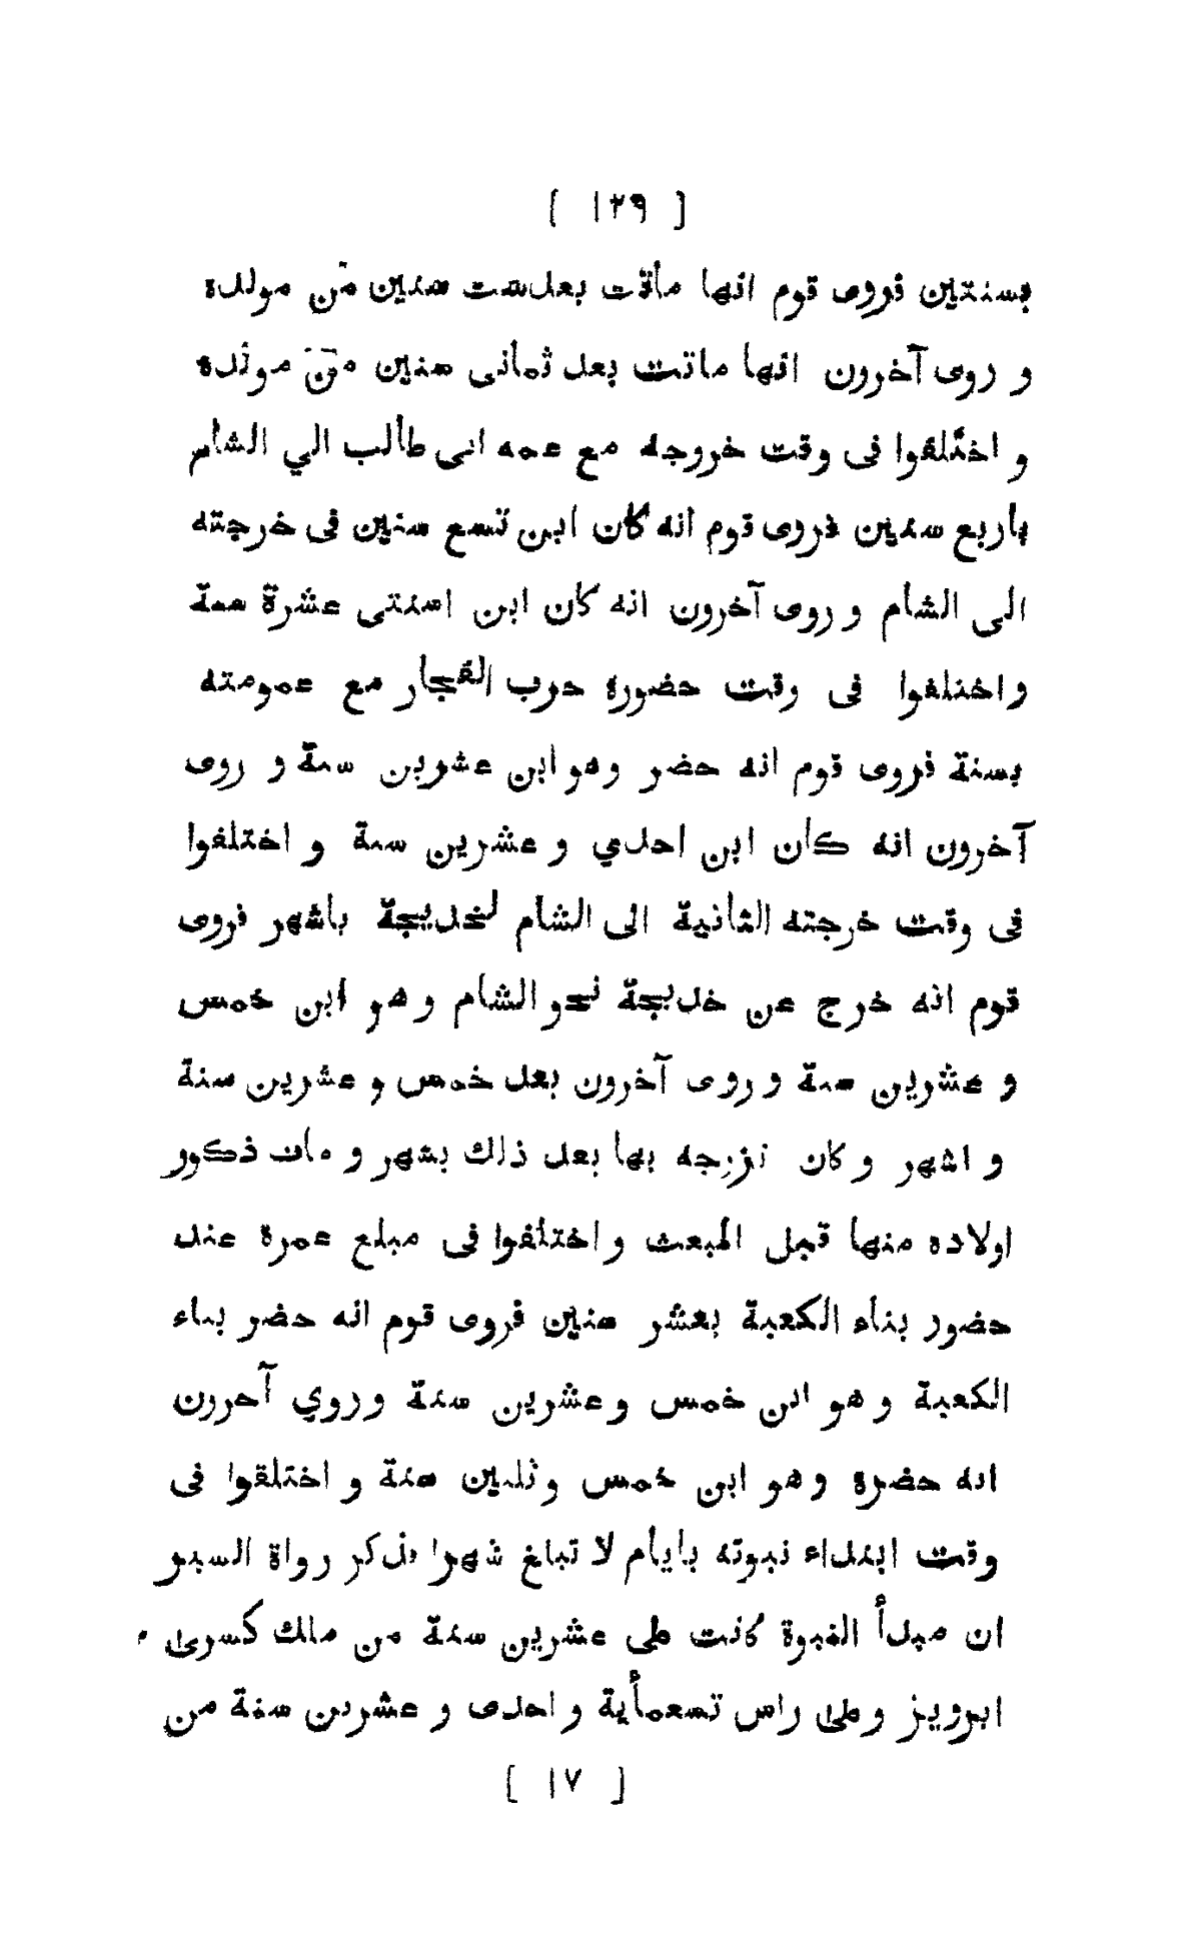 [ ١٢٩ ]
بسنتين فروى قوم انها ماتت بعد ست سنين من مولده
و روى آخرون انها ماتت بعد ثمانى سنين من مولده
و اختلفوا فى وقت خروجه مع عمه ابى طالب الي الشام
باربع سنين فروى قوم انه كان ابن تسع سنين فى خرجته
الى الشام و روى آخرون انه كان ابن اسنتى عشرة سنة
واختلفوا فى وقت حضوره حرب الفجار مع عمومته
بسنة فروى قوم انه حضر وهو ابن عشرين سنة و روى
آخرون انه كان ابن احدي و عشرين سنة و اختلفوا
فى وقت خرجته الثانية الى الشام لخديجة باشهر فروى
قوم انه خرج عن خديجة نحو الشام وهو ابن خمس
و عشرين سنة و روى آخرون بعد خمس و عشرين سنة
و اشهر و كان تزوجه بها بعد ذلك بشهر و مات ذكور
اولاده منها قبل المبعث واختلفوا فى مبلغ عمره عند
حضور بناء الكعبة بعشر سنين فروى قوم انه حضر بناء
الكعبة وهو ابن خمس وعشرين سنة وروي آخرون
انه حضره وهو ابن خمس وثلثين سنة و اختلفوا فى
وقت ابتداء نبوته بايام لا تبلغ شهرا فذكر رواة السير
ان مبدأ النبوة كانت على عشرين سنة من ملك كسرى
ابرويز وعلى راس تسعمأية و احدى و عشرين سنة من
[ ١٧ ]